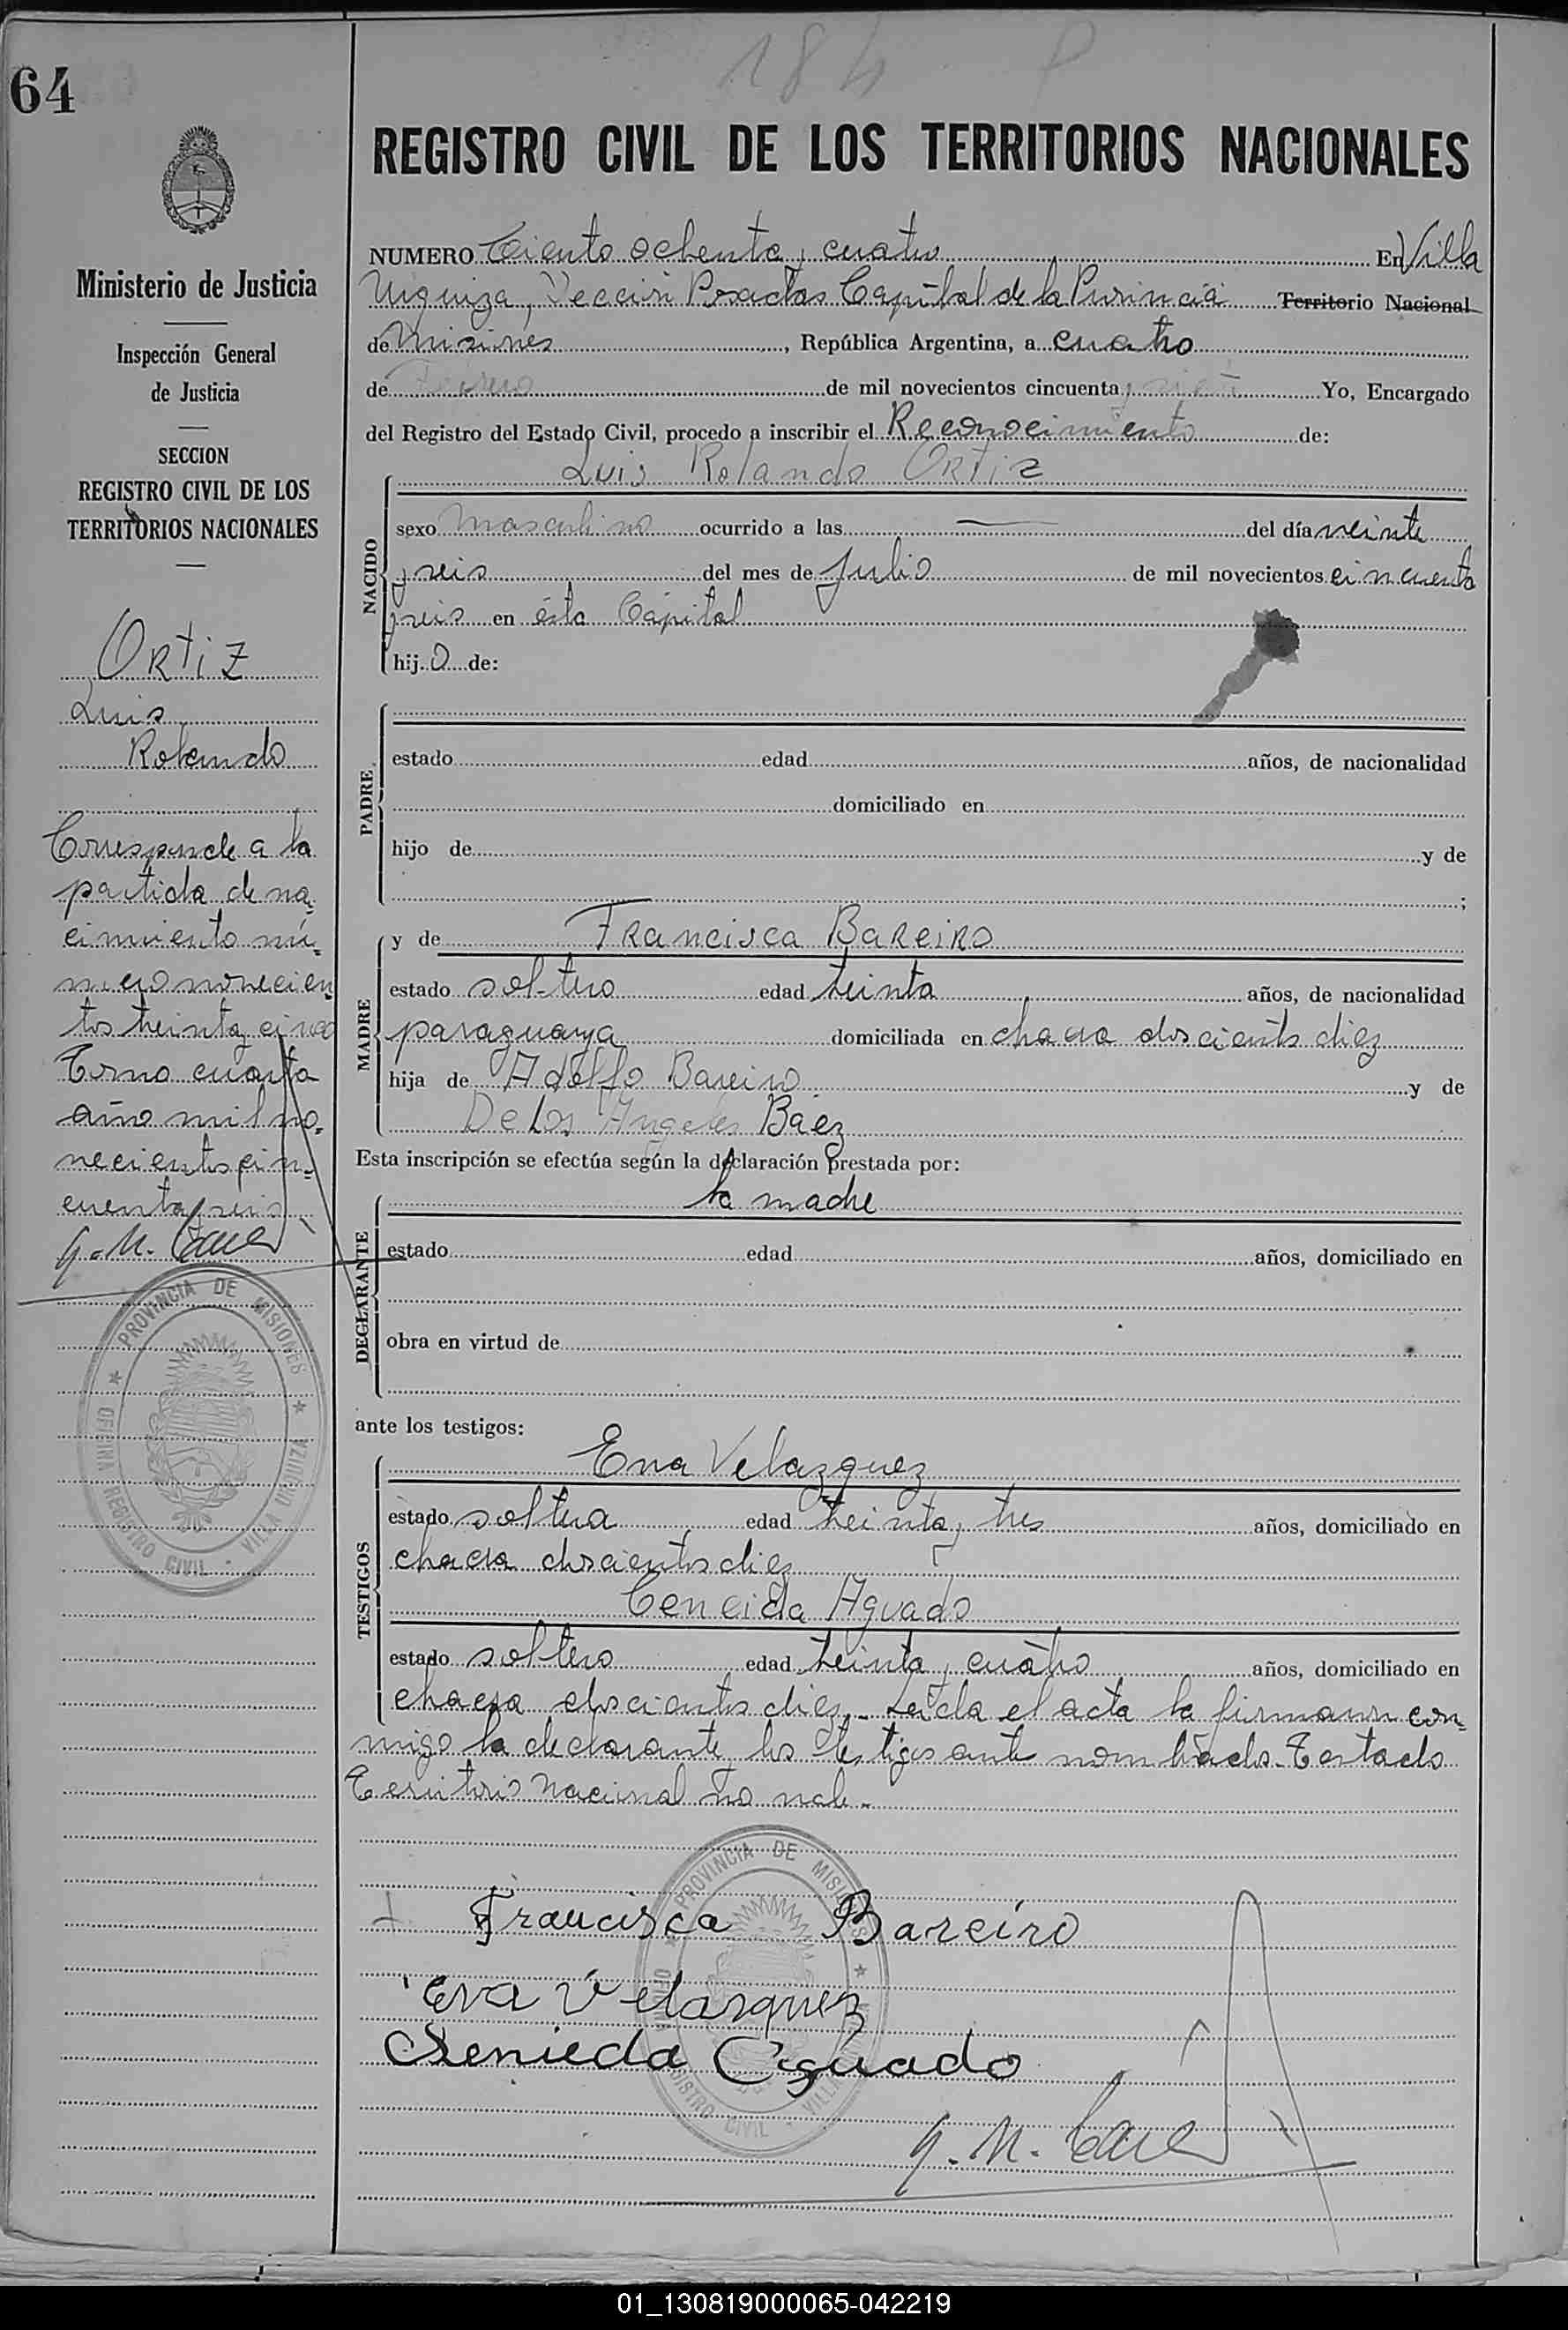 184 P
64
REGISTRO CIVIL DE LOS TERRITORIOS NACIONALES
Ministerio de Justicia
Inspección General
de Justicia
SECCION
REGISTRO CIVIL DE LOS
TERRITORIOS NACIONALES
Ortiz
Luis
Rolando
Corresponde a la
partida de na=
cimiento nú=
mero novecien
tos treinta y cinco
Tomo cuarto
año mil no=
vecientos cin=
cuenta y seis
PROVINCIA DE MISIONES
OFICINA REGISTRO CIVIL - VILLA URQUIZA
NUMERO Ciento ochenta y cuatro En Villa
Urquiza, Sección Posadas Capital de la Provincia Territorio Nacional
de Misiones, República Argentina, a cuatro
de Febrero de mil novecientos cincuenta y siete Yo, Encargado
del Registro del Estado Civil, procedo a inscribir el Reconocimiento de:
NACIDO
Luis Rolando Ortiz
sexo masculino ocurrido a las — del día veinte
y seis del mes de Julio de mil novecientos cincuenta
y seis en ésta Capital
hijo de:
PADRE
estado edad años, de nacionalidad
domiciliado en
hijo de y de
;
MADRE
y de Francisca Bareiro
estado soltero edad treinta años, de nacionalidad
paraguaya domiciliada en chacra doscientos diez
hija de Adolfo Bareiro y de
De Los Angeles Báez
Esta inscripción se efectúa según la declaración prestada por:
DECLARANTE
la madre
estado edad años, domiciliado en
obra en virtud de
ante los testigos:
TESTIGOS
Eva Velazquez
estado soltera edad treinta y tres años, domiciliado en
chacra doscientos diez
Ceneida Aguado
estado soltero edad treinta y cuatro años, domiciliado en
chacra doscientos diez.- Leida el acta la firmaron con=
migo la declarante y los testigos ante nombrados. Testado
Territorio Nacional no vale.-
PROVINCIA DE MISIONES
Francisca Bareiro
Eva Velasquez
Senieda Aguado
01_130819000065-042219